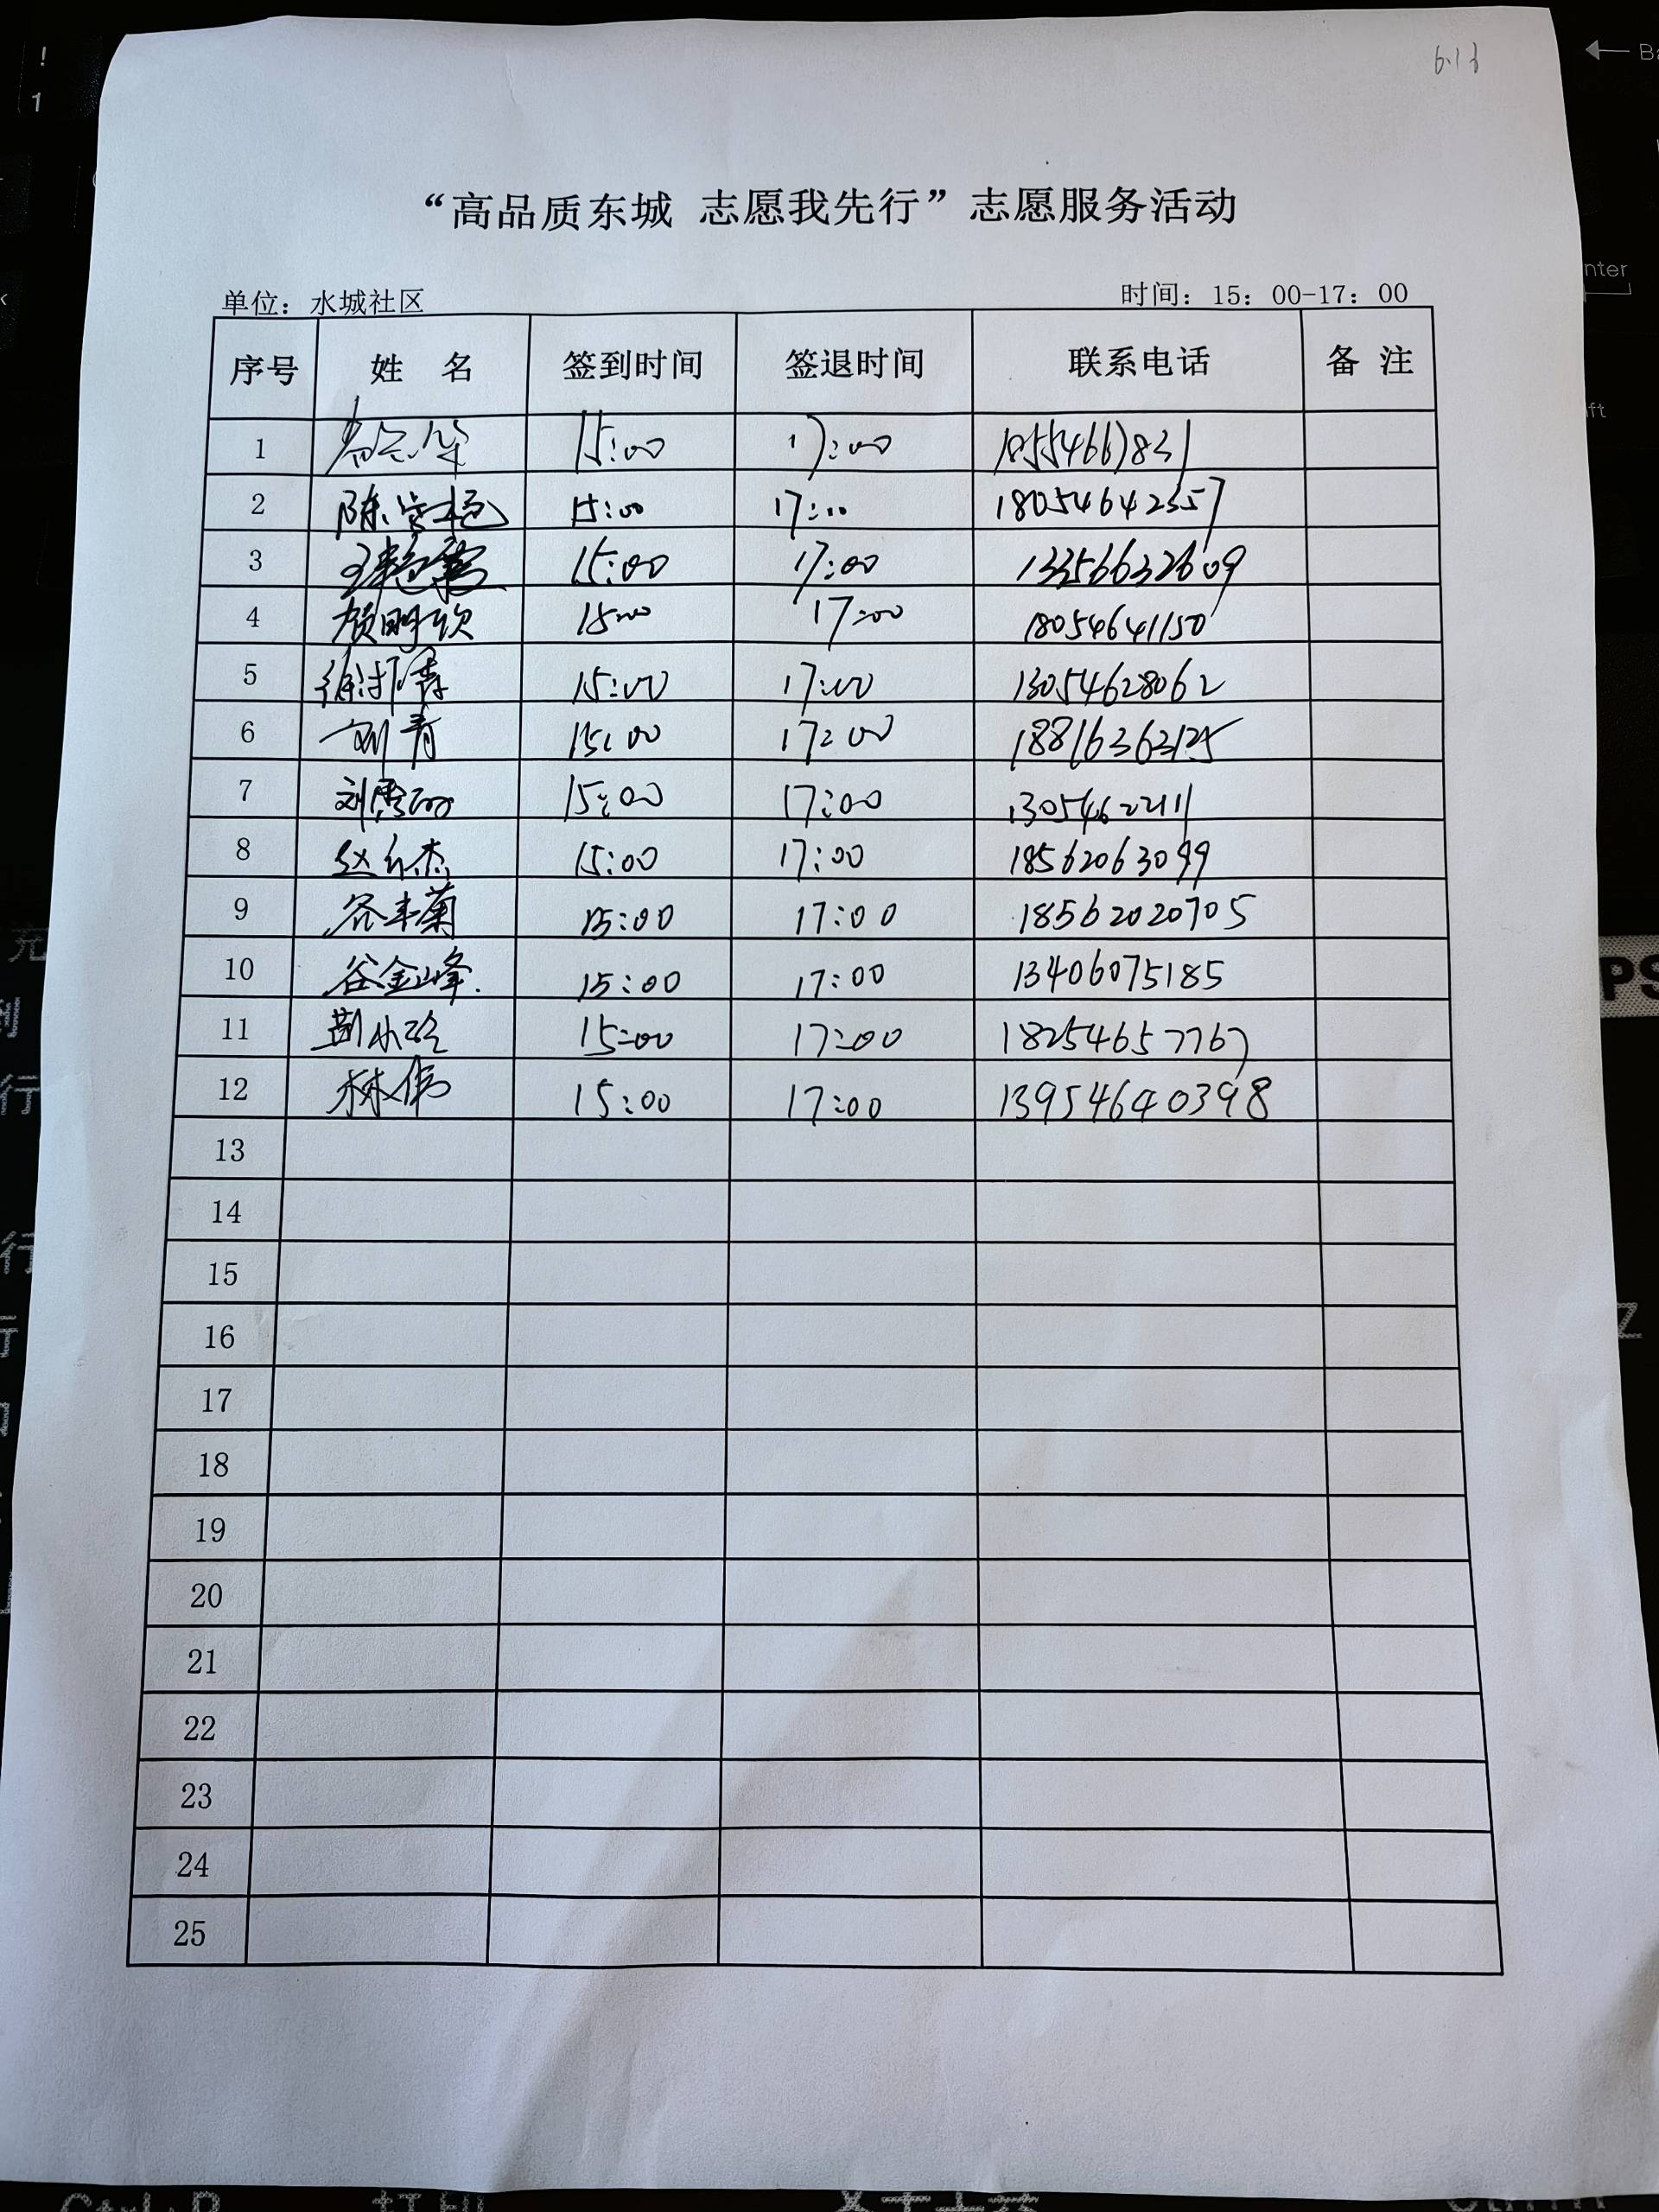 6.13
“高品质东城 志愿我先行”志愿服务活动
单位：水城社区 时间：15：00-17：00
序号 姓 名 签到时间 签退时间 联系电话 备 注
1 15:00 17:00
2 15:00 17:00 18054642357
3 15:00 17:00 13356632609
4 15:00 17:00 18054641150
5 15:00 17:00 13054628062
6 刘青 15:00 17:00 18816363125
7 15:00 17:00
8 15:00 17:00 18562063099
9 谷丰菊 15:00 17:00 18562020705
10 谷金峰. 15:00 17:00 13406075185
11 15:00 17:00 18254657767
12 林伟 15:00 17:00 13954640398
13
14
15
16
17
18
19
20
21
22
23
24
25